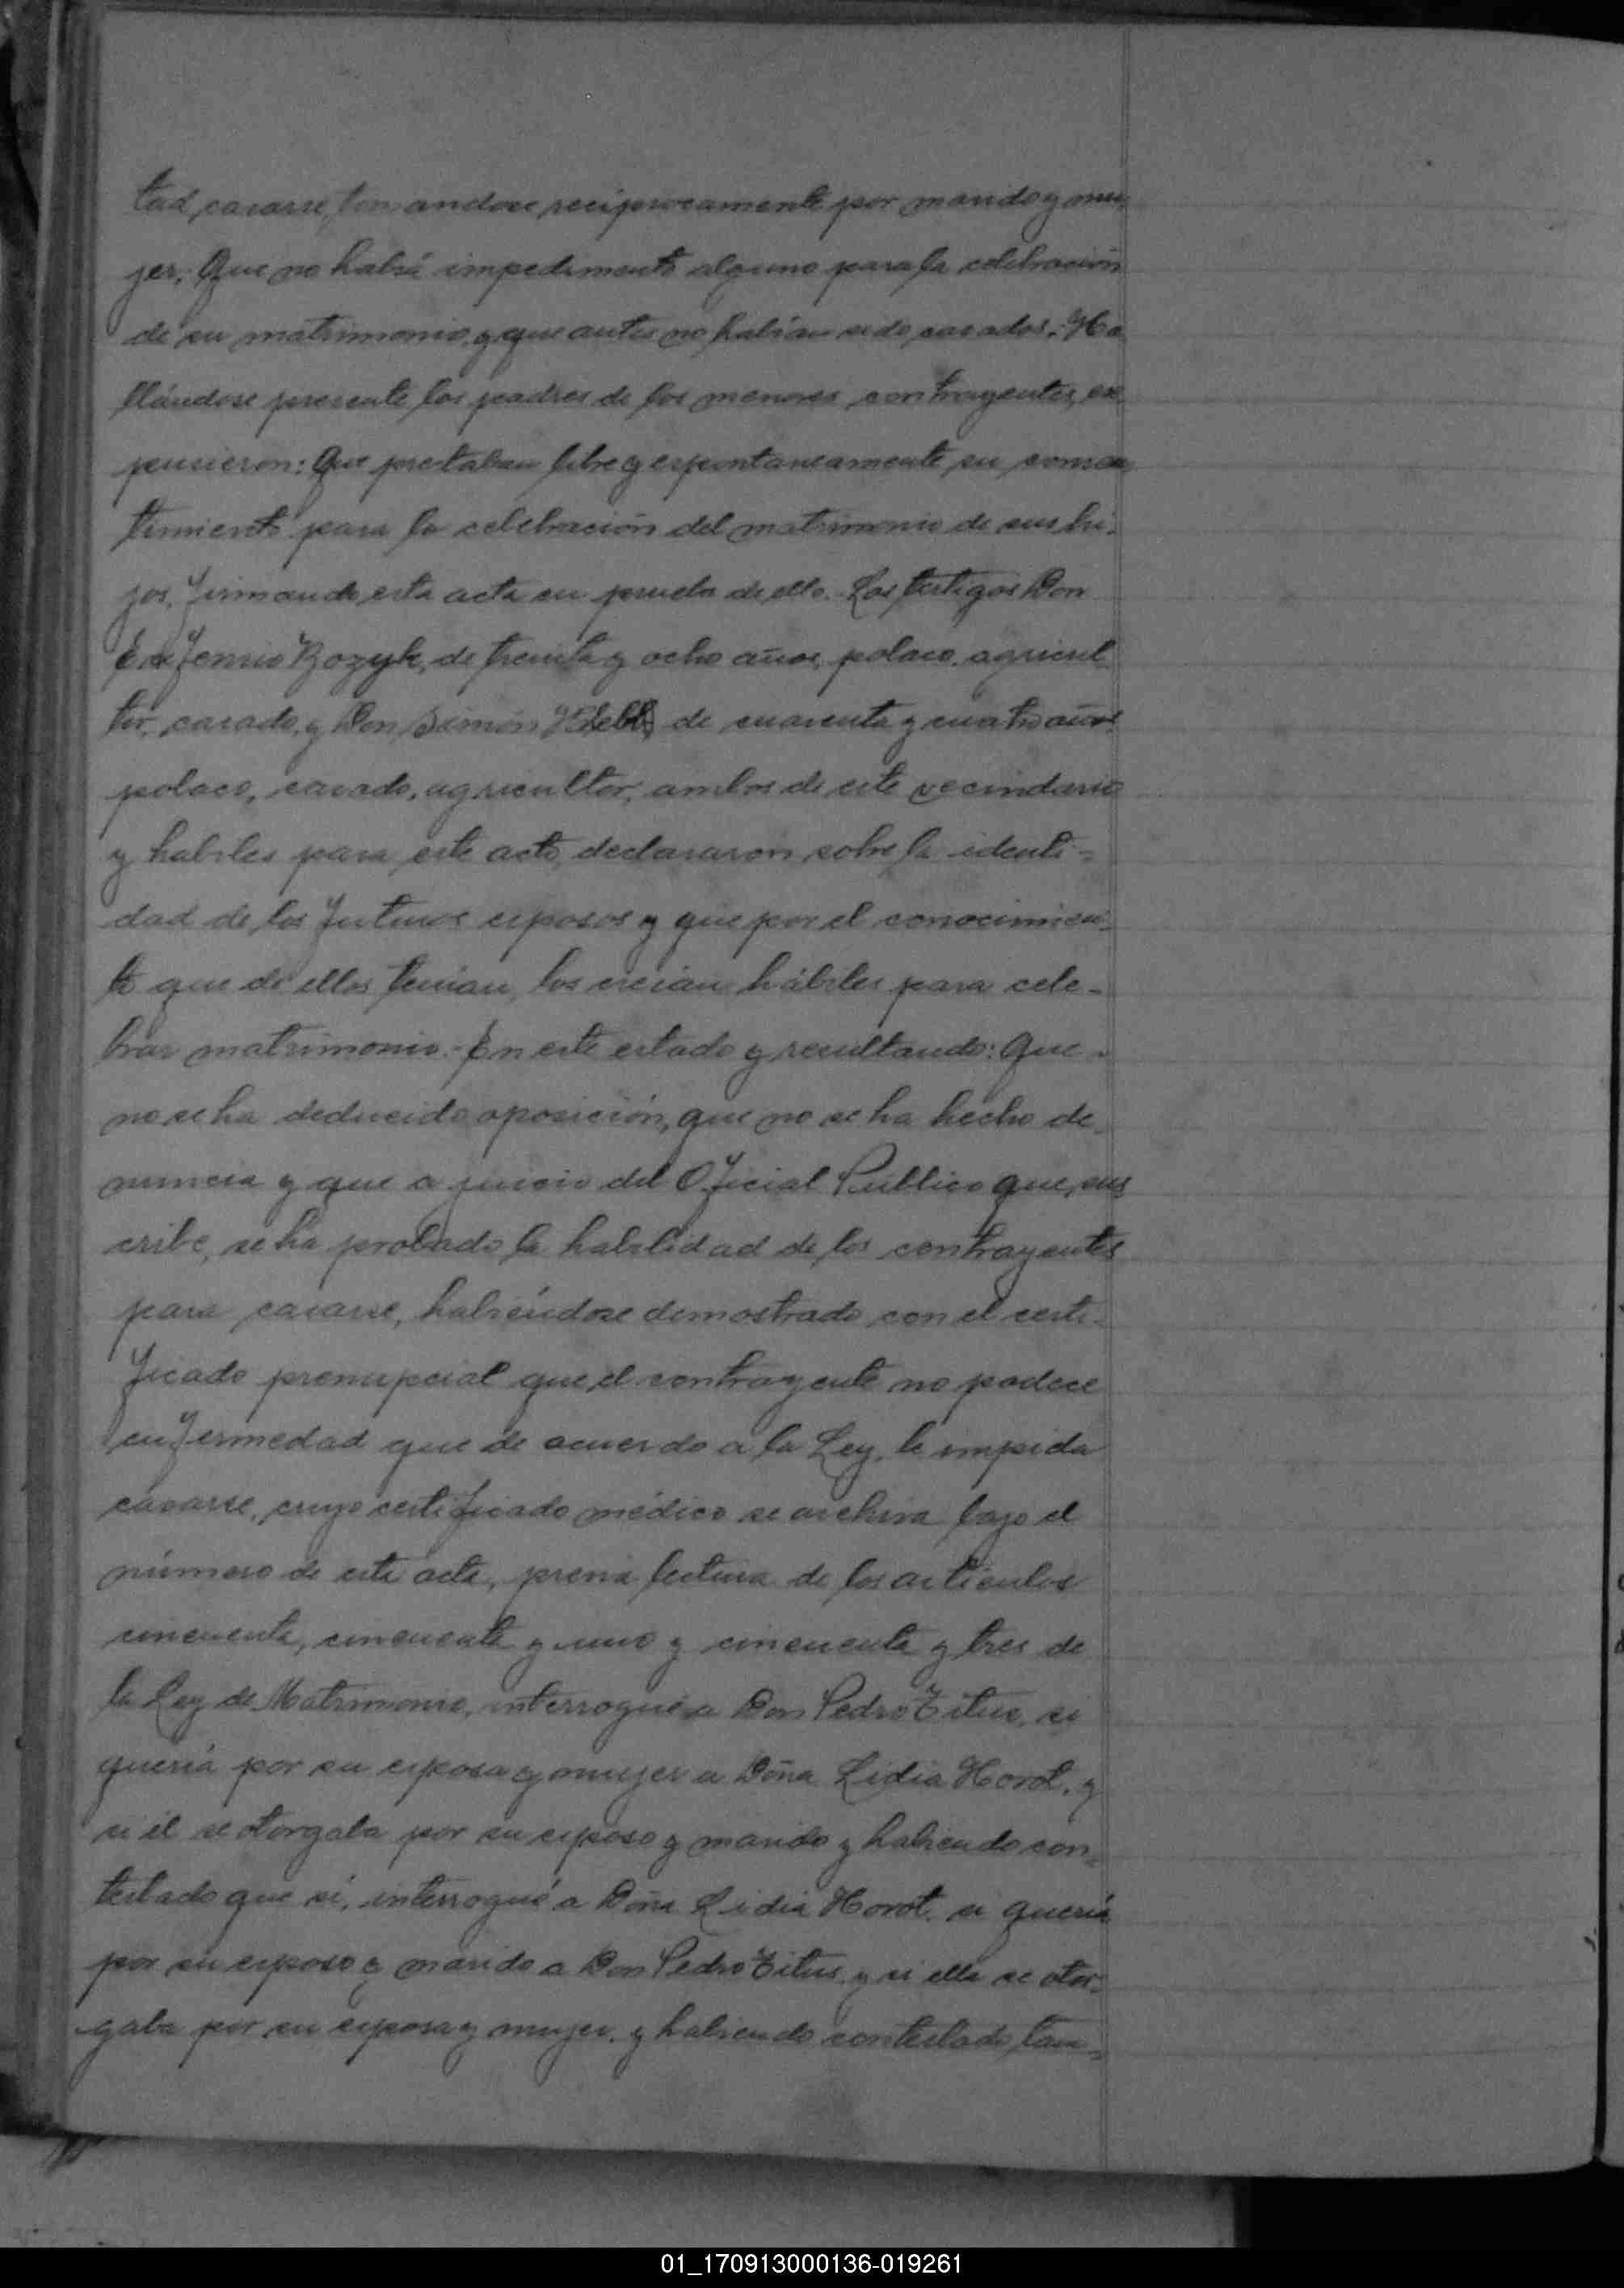 tad, casarse, tomandose reciprocamente por marido y mu-
jer; Que no habiá impedimento alguno para la celebración
de su matrimonio, y que antes no habian sido casados. Ha
llándose presente los padres de los menores contrayentes, ex
pusieron: Que prestaban libre y espontaneamente su consen
timiento para la celebración del matrimonio de sus hi-
jos, firmando esta acta en prueba de ello. Los testigos Don
Bozyk, de treinta y ocho años, polaco, agricul
tor, casado, y Don Simón de cuarenta y cuatro años
polaco, casado, agricultor, ambos de este vecindario
y habiles para este acto, declararon sobre la identi-
dad de los futuros esposos y que por el conocimien-
to que de ellos tenian, los creian hábiles para cele-
brar matrimonio.- En este estado y resultando: Que -
no se ha deducido oposición, que no se ha hecho de-
nuncia y que a juicio del Oficial Público que sus
cribe, se ha probado la habilidad de los contrayentes
para casarse, habiéndose demostrado con el certi-
ficado prenupcial que el contrayente no padece
enfermedad que de acuerdo a la Ley, le impida
casarse, cuyo certificado médico se archiva bajo el
número de esta acta, previa lectura de los articulos
cincuenta, cincuenta y uno y cincuenta y tres de
la Ley de Matrimonio, interrogué a Don Pedro Titus, si
queriá por su esposa y mujer a Doña Lidia Horot, y
si él se otorgaba por su esposo y marido y habiendo con-
testado que sí, interrogué a Doña Lidia Horot, si queriá
por su esposo y marido a Don Pedro Titus, y si ella se otor-
gaba por su esposa y mujer, y habiendo contestado tam-
01_170913000136-019261